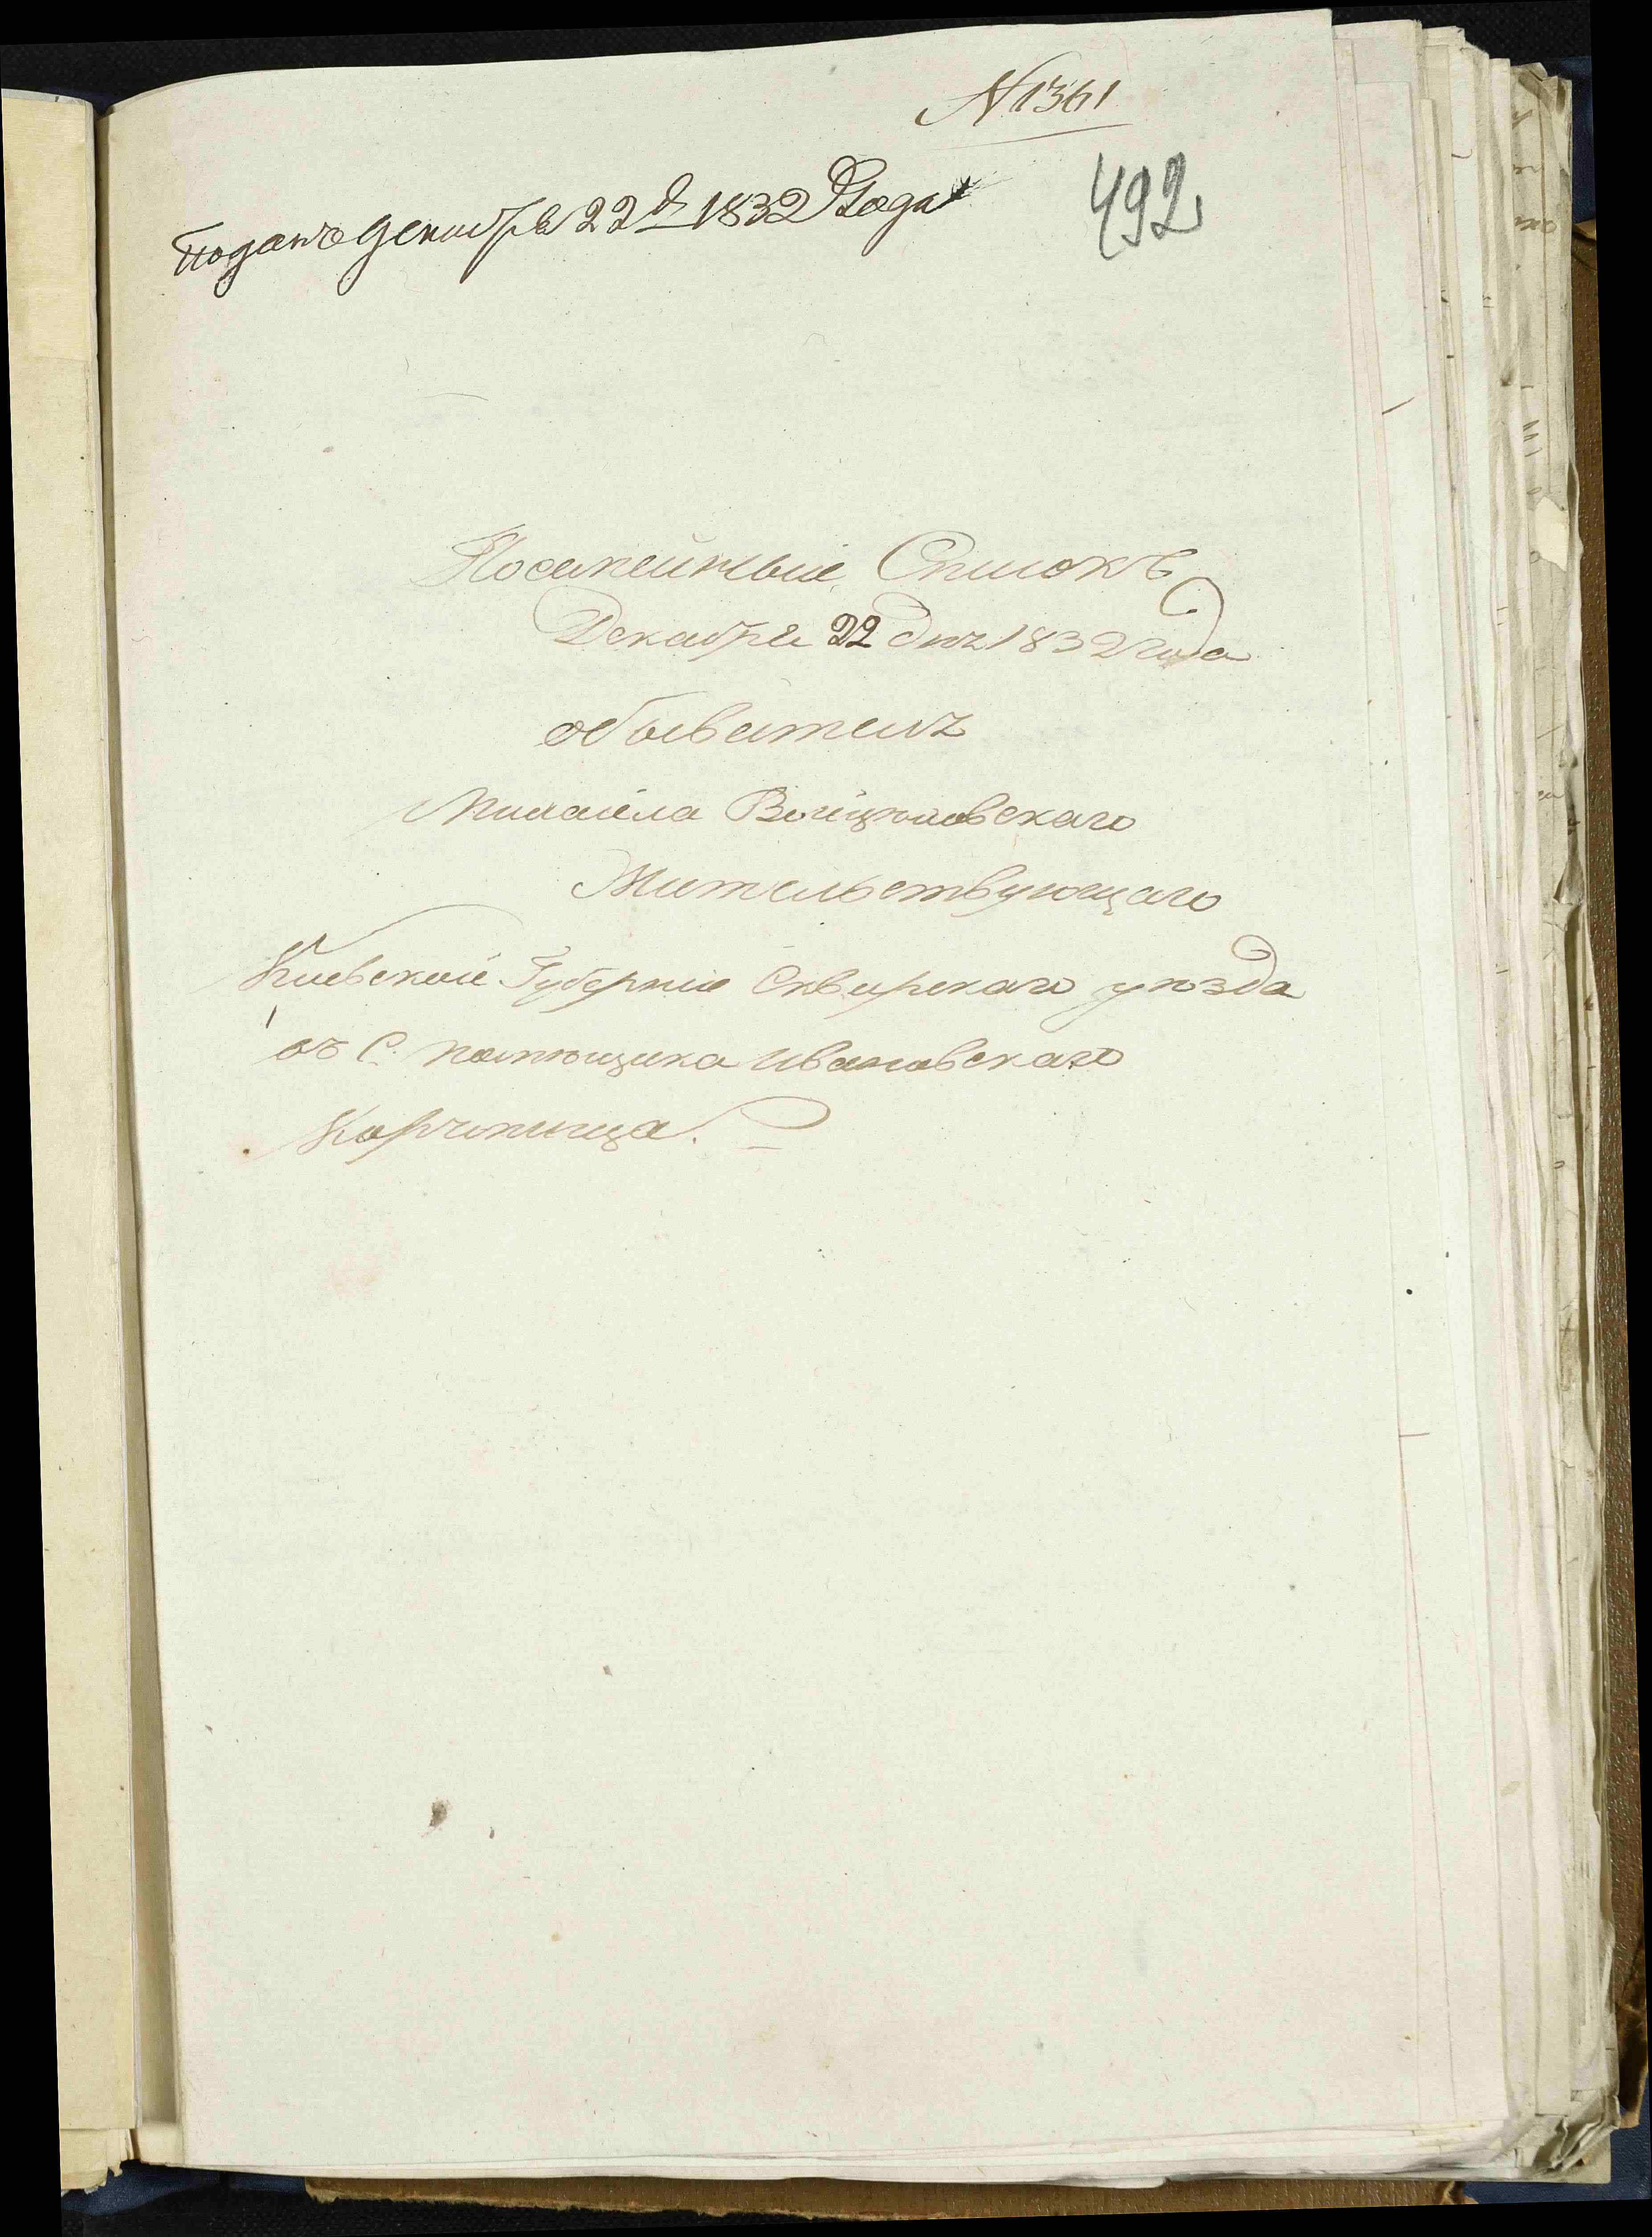 N 1361
492
подань декабря 22 д. 1832 Года
Посемейный Списокъ
Декабря 22 дня 1832 года
обывателя
Михайла Войцѣховскаго
Жительствующаго
Киевской Губернии Сквирскаго уѣзда
въ С. помѣщика Ивановскаго